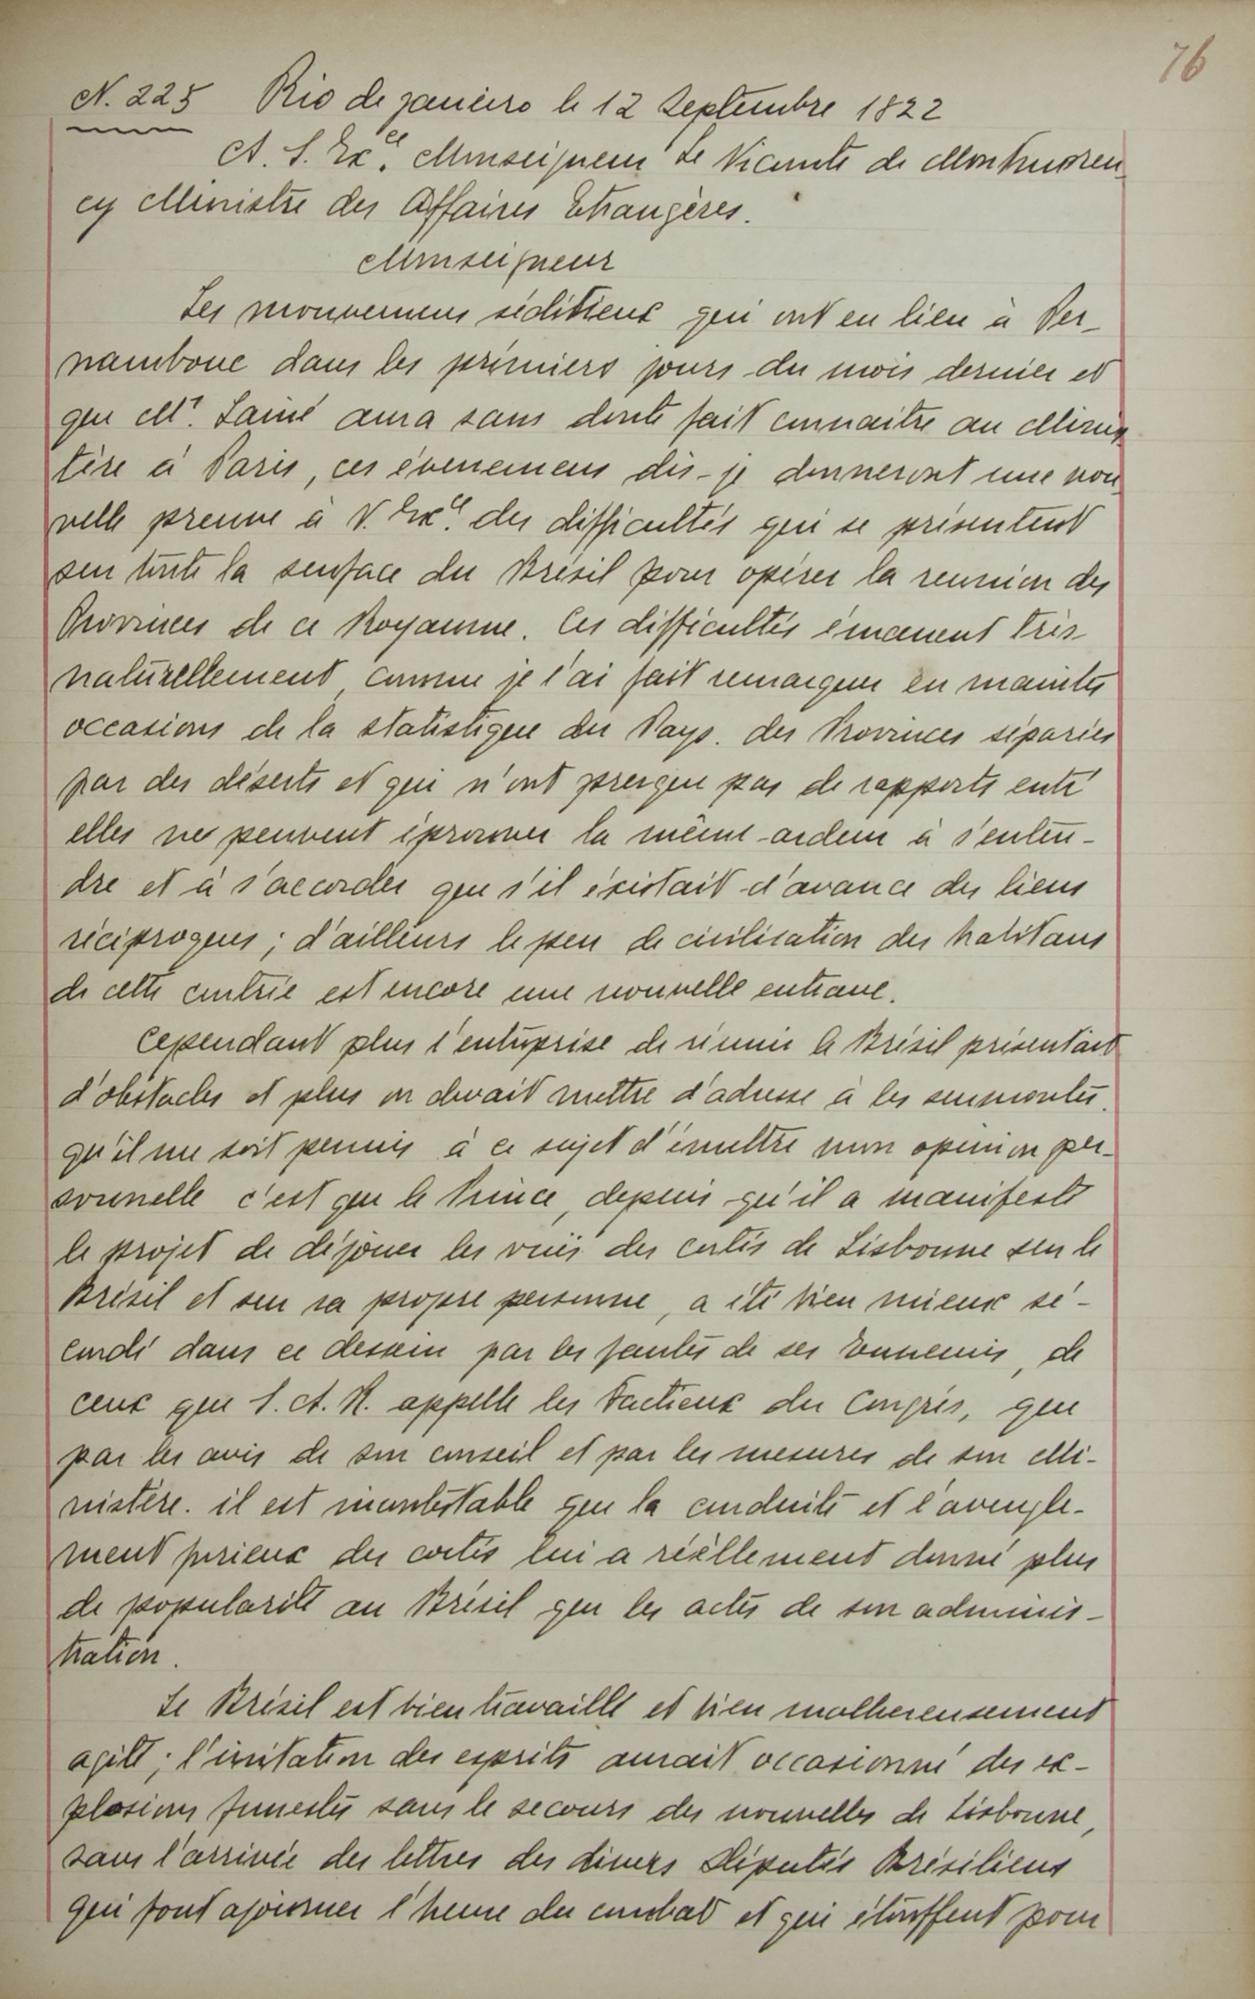 76
N. 225 Rio de janeiro le 12 Septembre 1822
A. S. Exce. Monseigneur Le Vicomte de Montmoren_
cy Ministre des Affaires Etrangères.
Monseigneur
Les mouvemens séditieux qui ont eu lieu à Per_
nambouc dans les prémiers jours du mois dernier et
que Mr. Lainé aura sans doute fait connaitre au Minis
tère à Paris, ces évenemens dis-je donneront une nou_
velle preuve à V. Exce. des difficultés qui se présentent
sur toute la surface du Brésil pour opérer la reunion des
Provinces de ce Royaume. Ces difficultés émanent très
naturellement, comme je l'ai fait remarquer en maintes
occasions de la statistique du Pays. des Provinces séparées
par des déserts et qui n'ont presque pas de rapports entr'
elles ne peuvent éprouver la même ardeur à s'enten-
dre et à s'accorder que s'il éxistait d'avance des liens
réciproques; d'ailleurs le peu de civilisation des habitans
de cette contrée est encore une nouvelle entrave.
Cependant plus l'entreprise de réunir le Brésil présentait
d'obstacles et plus on devait mettre d'adresse à les surmonter.
qu'il me soit permis à ce sujet d'émettre mon opinion per-
sonnelle c'est que le Prince, depuis qu'il a manifesté
le projet de déjouer les vues des cortès de Lisbonne sur le
Brésil et sur sa propre personne, a été bien mieux se-
condé dans ce dessein par les fautes de ses Ennemis, de
ceux que S. A. R. appelle les Factieux du Congrès, que
par les avis de son conseil et par les mesures de son Mi-
nistère. il est incontestable que la conduite et l'aveugle-
ment furieux des cortès lui a réellement donné plus
de popularité au Brésil que les actes de son adminis-
tration.
Le Brésil est bien travaillé et bien malheureusement
agité; l'irritation des esprits aurait occasionné des ex-
plosions funestes sans le secours des nouvelles de Lisbonne,
sans l'arrivée des lettres des divers Députés Brésiliens
qui font ajourner l'heure du combat et qui étouffent pour